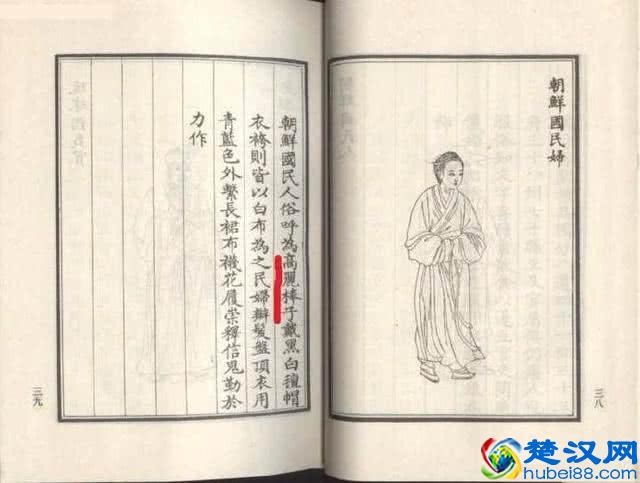 朝鮮國民婦
三八
朝鮮國民人俗呼為高麗棒子戴黑白氊帽
衣袴則皆以白布為之民婦辮髮盤頂衣用
青藍色外繫長裙布襪花履崇釋信鬼勤於
力作
三九
楚汉网
hubei88.com